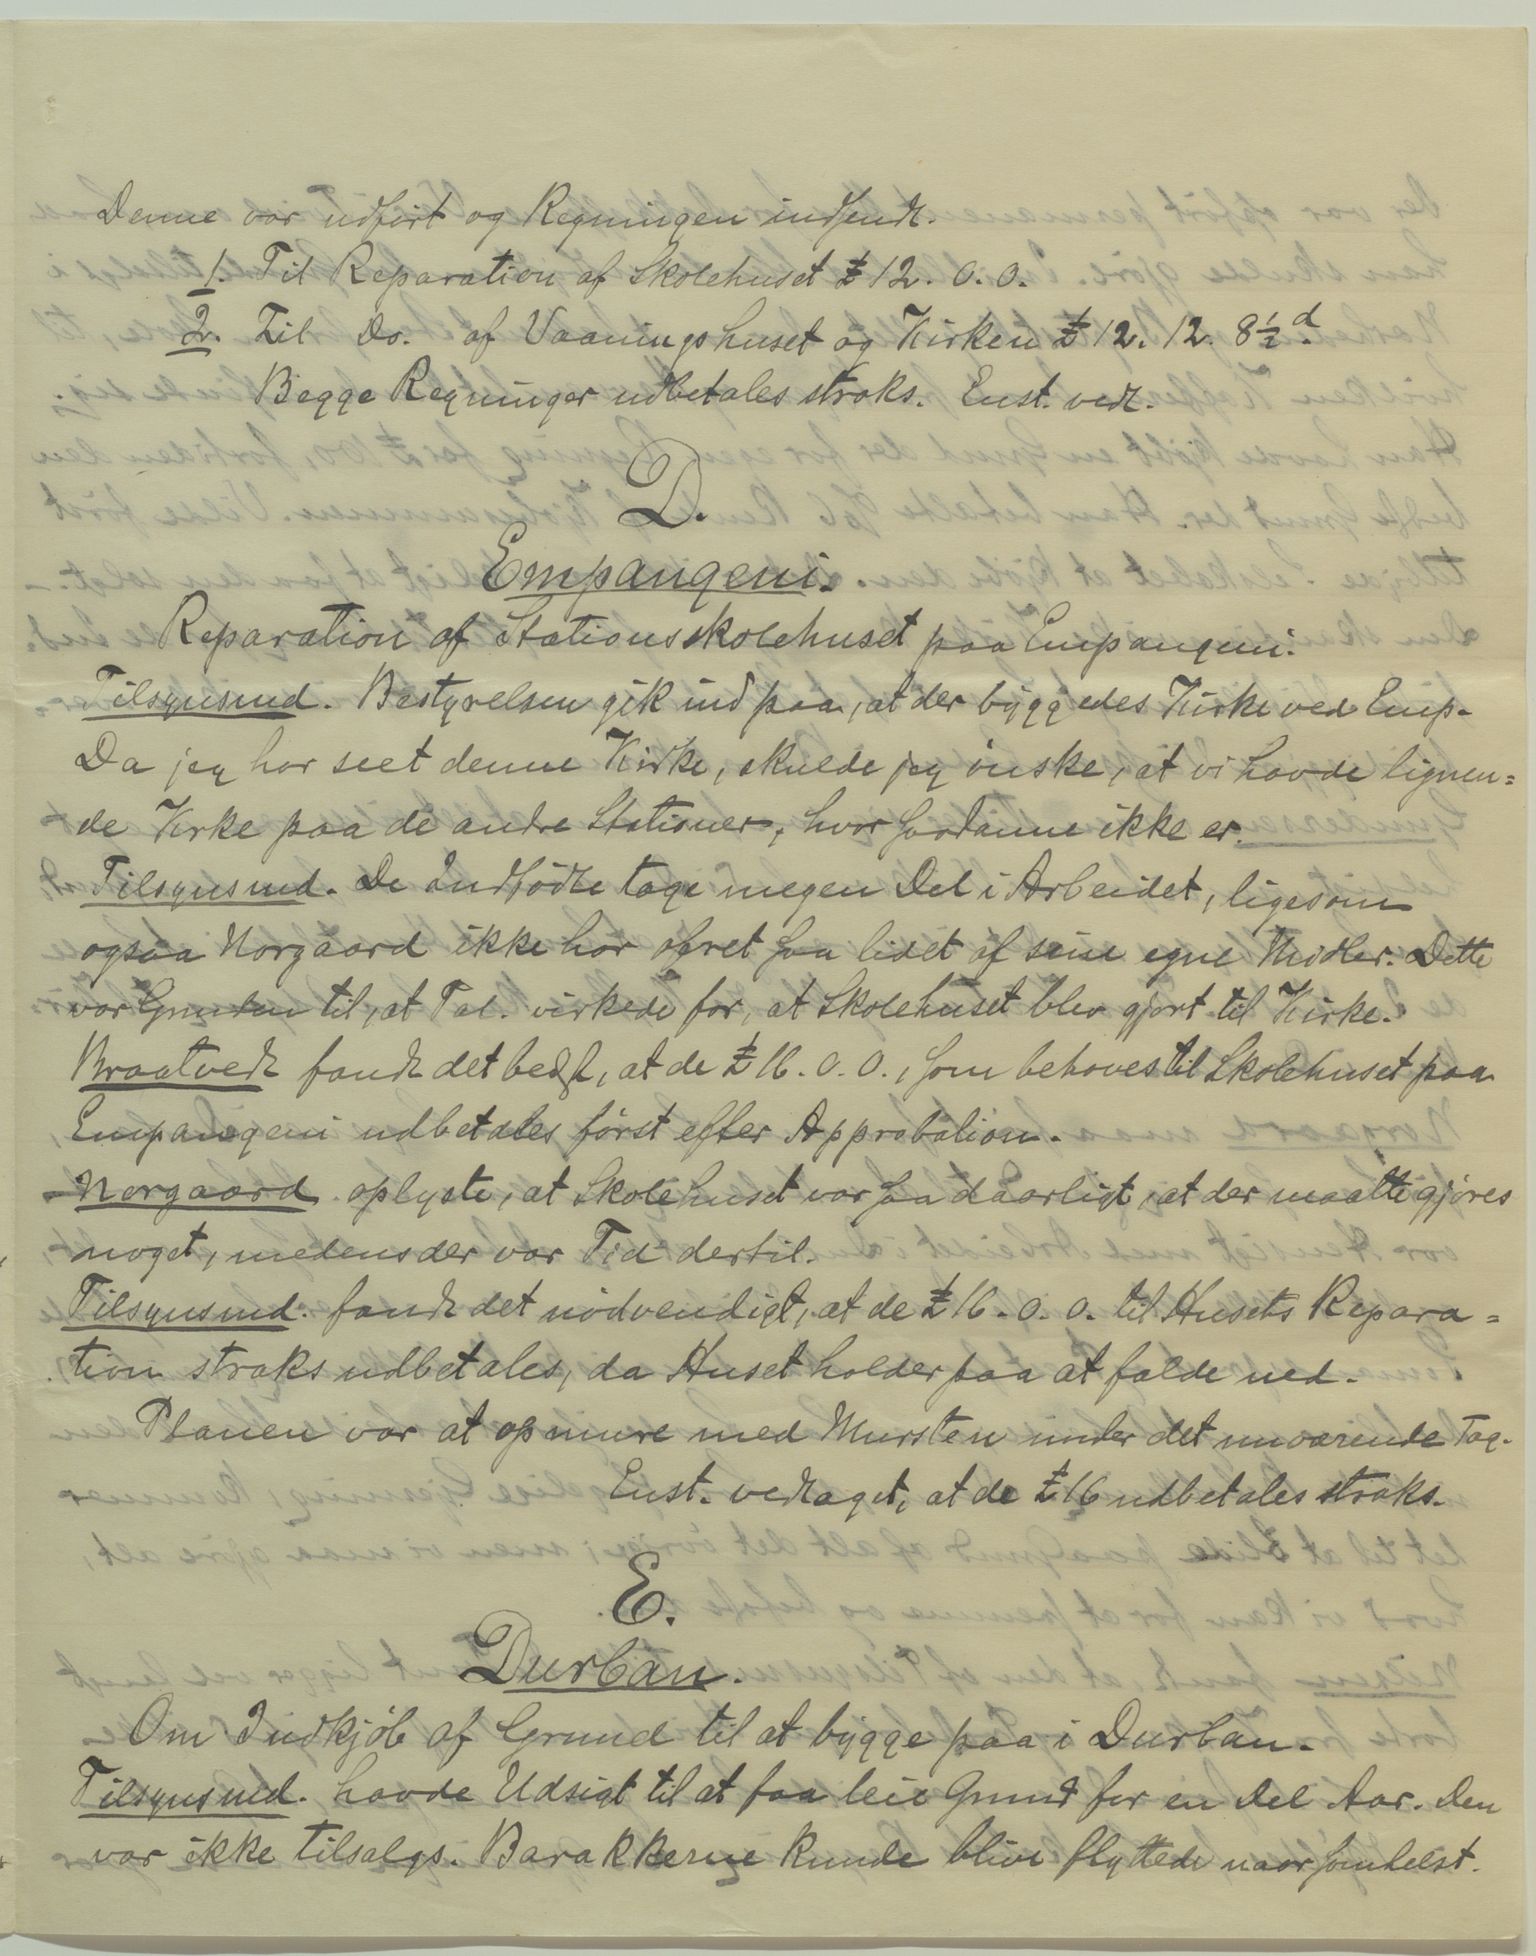 Denne var udført og Regningen indsendt.
1. Til Reparation af Skolehuset £ 12. 0. 0.
2. Til Do. af Vaaningshuset og Kirken £ 12. 12. 8½ d.
Begge Regninger udbetales straks. Enst. vedt.
D.
Empangeni.
Reparation af Stationsskolehuset paa Empangeni.
Tilsynsmd. Bestyrelsen gik ind paa, at der byggedes Kirke ved Emp.
Da jeg har seet denne Kirke, skulde jeg ønske, at vi havde lignen=
de Kirke paa de andre Stationer, hvor saadanne ikke er.
Tilsynsmd. De Indfødte tage megen Del i Arbeidet, ligesom
ogsaa Norgaard ikke har ofret saa lidet af sine egne Midler. Dette
var Grunden til, at Tal. virkede for, at Skolehuset blev gjort til Kirke.
Braatvedt fandt det bedst, at de £ 16. 0. 0., som behøves til Skolehuset paa
Empangeni udbetales først efter Approbation.
Norgaard oplyste, at Skolehuset var saa daarligt, at der maatte gjøres
noget, medens der var Tid dertil.
Tilsynsmd. fandt det nødvendigt, at de £ 16. 0. 0. til Husets Repara=
tion straks udbetales, da Huset holder paa at falde ned.
Planen var at opmure med Mursten under det nuværende Tag.
Enst. vedtaget, at de £ 16 udbetales straks.
E.
Durban.
Om Indkjøb af Grund til at bygge paa i Durban.
Tilsynsmd. havde Udsigt til at faa leie Grund for en Del Aar. Den
var ikke tilsalgs. Barakkerne kunde blive flyttede naarsomhelst.